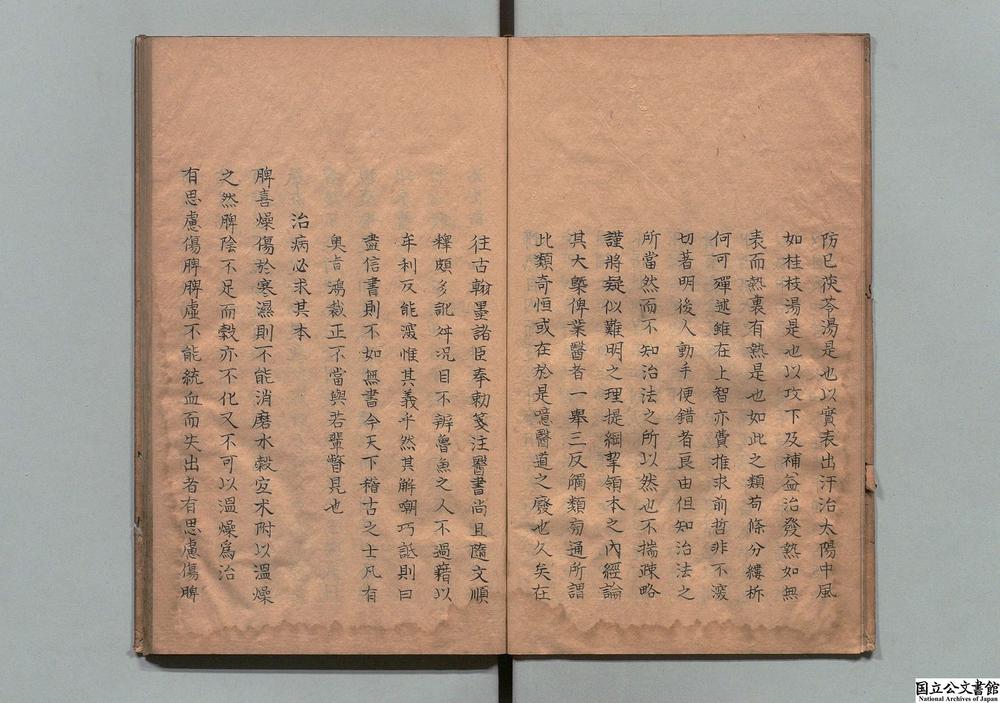 防已茯苓湯是也以實表出汗治太陽中風
如桂枝湯是也以攻下及補益治發熱如無
表而熱裏有熱是也如此之類苟條分縷析
何可殫述雖在上智亦費推求前哲非不深
切著明後人動手便錯者良由但知治法之
所當然而不知治法之所以然也不揣疎略
謹將疑似難明之理提綱挈領本之內經論
其大槩俾業醫者一舉三反觸類旁通所謂
此類奇恒或在於是噫醫道之廢也久矣在
往古翰墨諸臣奉勅箋注醫書尚且隨文順
釋頗多訛舛况目不辨魯魚之人不過藉以
牟利反能深惟其義乎然其解嘲巧詆則曰
盡信書則不如無書今天下稽古之士凡有
奧旨鴻裁正不當與若輩瞽見也
治病必求其本
脾喜燥傷於寒濕則不能消磨水穀宜术附以溫燥
之然脾陰不足而穀亦不化又不可以溫燥爲治
有思慮傷脾脾虛不能統血而失出者有思慮傷脾
国立公文書館
National Archives of Japan